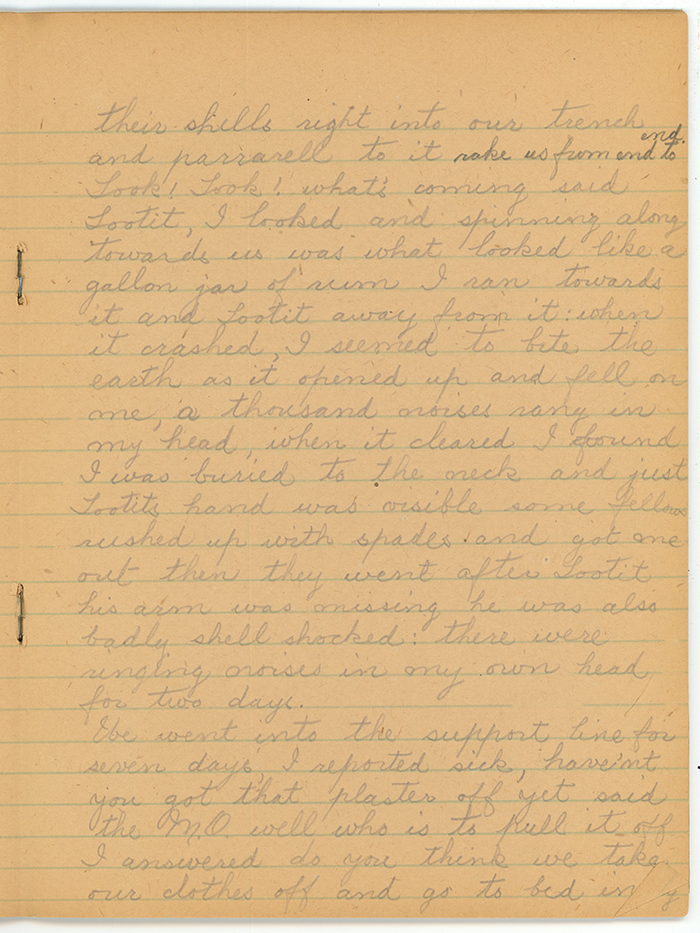 their shells right into our trench
and parrarell to it rake us from end to end.
Look! Look! what's coming said
Tootit, I looked and spinning along
towards us was what looked like a
gallon jar of rum I ran towards
it and Tootit away from it: when
it crashed, I seemed to bite the
earth as it opened up and fell on
me, a thousand noises rang in
my head, when it cleared I found
I was buried to the neck and just
Tootits hand was visible some fellows
rushed up with spades and got me
out then they went after Tootit
his arm was missing he was also
badly shell shocked: there were
ringing noises in my own head
for two days.
We went into the support line for
seven days, I reported sick, have'nt
you got that plaster off yet said
the M.O. well who is to pull it off
I answered do you think we take
our clothes off and go to bed in